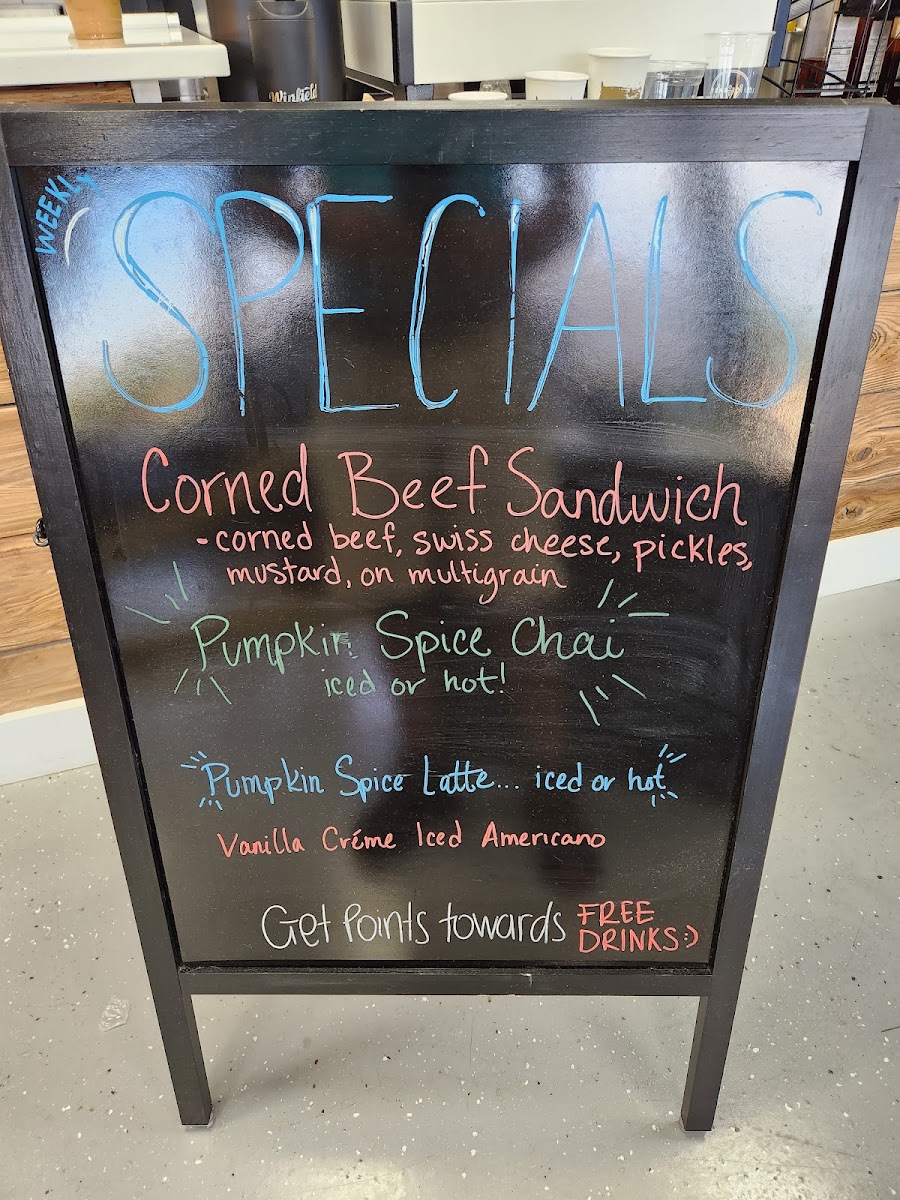 Winfield
WEEKLY
SPECIALS
Corned Beef Sandwich
-corned beef, swiss cheese, pickles,
mustard, on multigrain
Pumpkin Spice Chai
iced or hot!
Pumpkin Spice Latte... iced or hot
Vanilla Créme Iced Americano
Get Points towards FREE
DRINKS:)